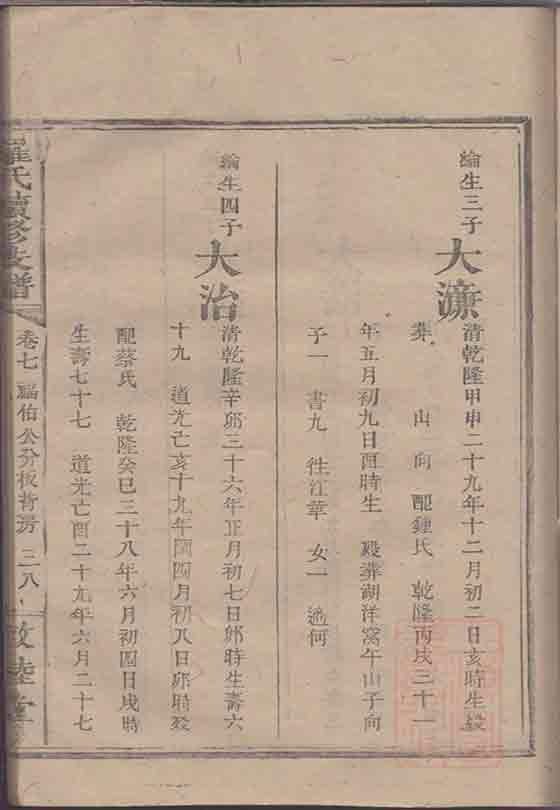 綸生三子
大濂
清乾隆甲申二十九年十二月初二日亥時生歿
葬 山 向 配鍾氏 乾隆丙戌三十一
年五月初九日酉時生 歿葬湖洋窩午山子向
子一 書九 徃江華 女一 適何
綸生四子
大治
清乾隆辛卯三十六年正月初七日卯時生壽六
十九 道光己亥十九年 四月初八日卯時歿
配蔡氏 乾隆癸巳三十八年六月初四日戌時
生壽七十七 道光己酉二十九年六月二十七
羅氏續修支譜
卷七 福伯公分板背房 二八
敦睦堂